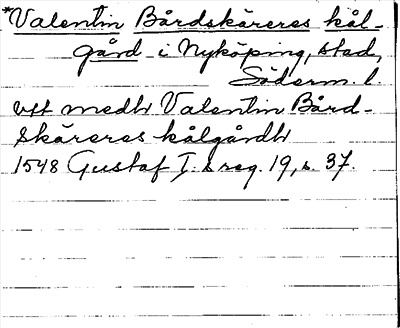 *Valentin Bårdskäreres kål-
gård i Nyköping, stad,
Söderm. l.
vtt medh Valentin Bård-
skäreres kålgårdh
1548 Gustaf I:s reg. 19, s. 37.